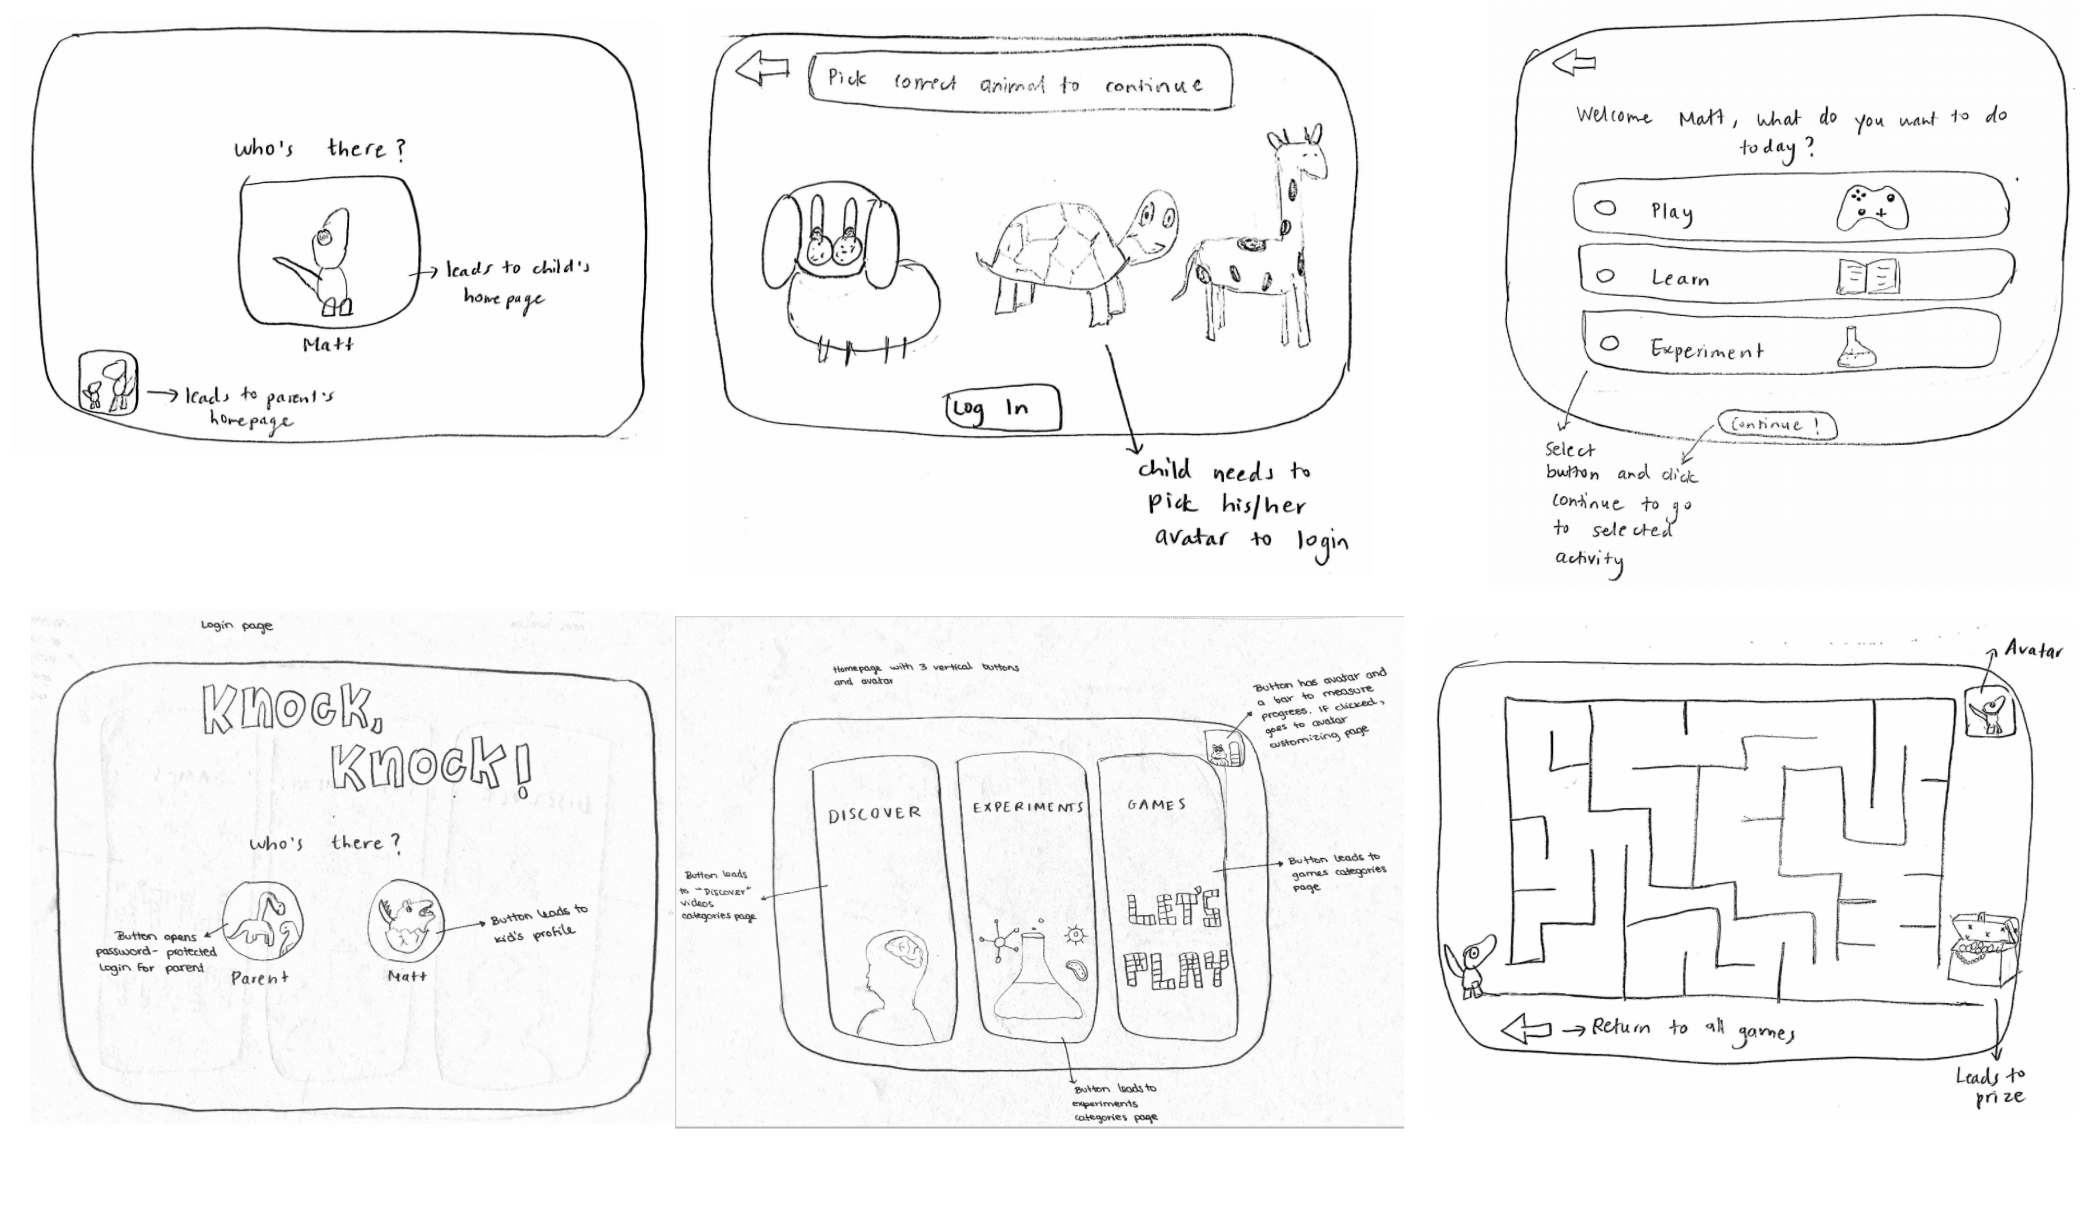 who's there?
leads to child's
homepage
Matt
leads to parent's
homepage
Pick correct animal to continue
Log In
child needs to
pick his/her
avatar to login
Welcome Matt, what do you want to do
today?
Play
Learn
Experiment
Continue!
Select
button and click
continue to go
to selected
activity
Login page
Knock,
Knock!
who's there?
Button opens
password-protected
login for parent
Parent
Matt
Button leads to
kid's profile
Homepage with 3 vertical buttons
and avatar
Button has avatar and
a bar to measure
progress. If clicked,
goes to avatar
customizing page
DISCOVER
EXPERIMENTS
GAMES
LET'S
PLAY
Button leads
to "Discover"
videos
categories page
Button leads to
games categories
page
Button leads to
experiments
categories page
Avatar
Return to all games
Leads to
prize